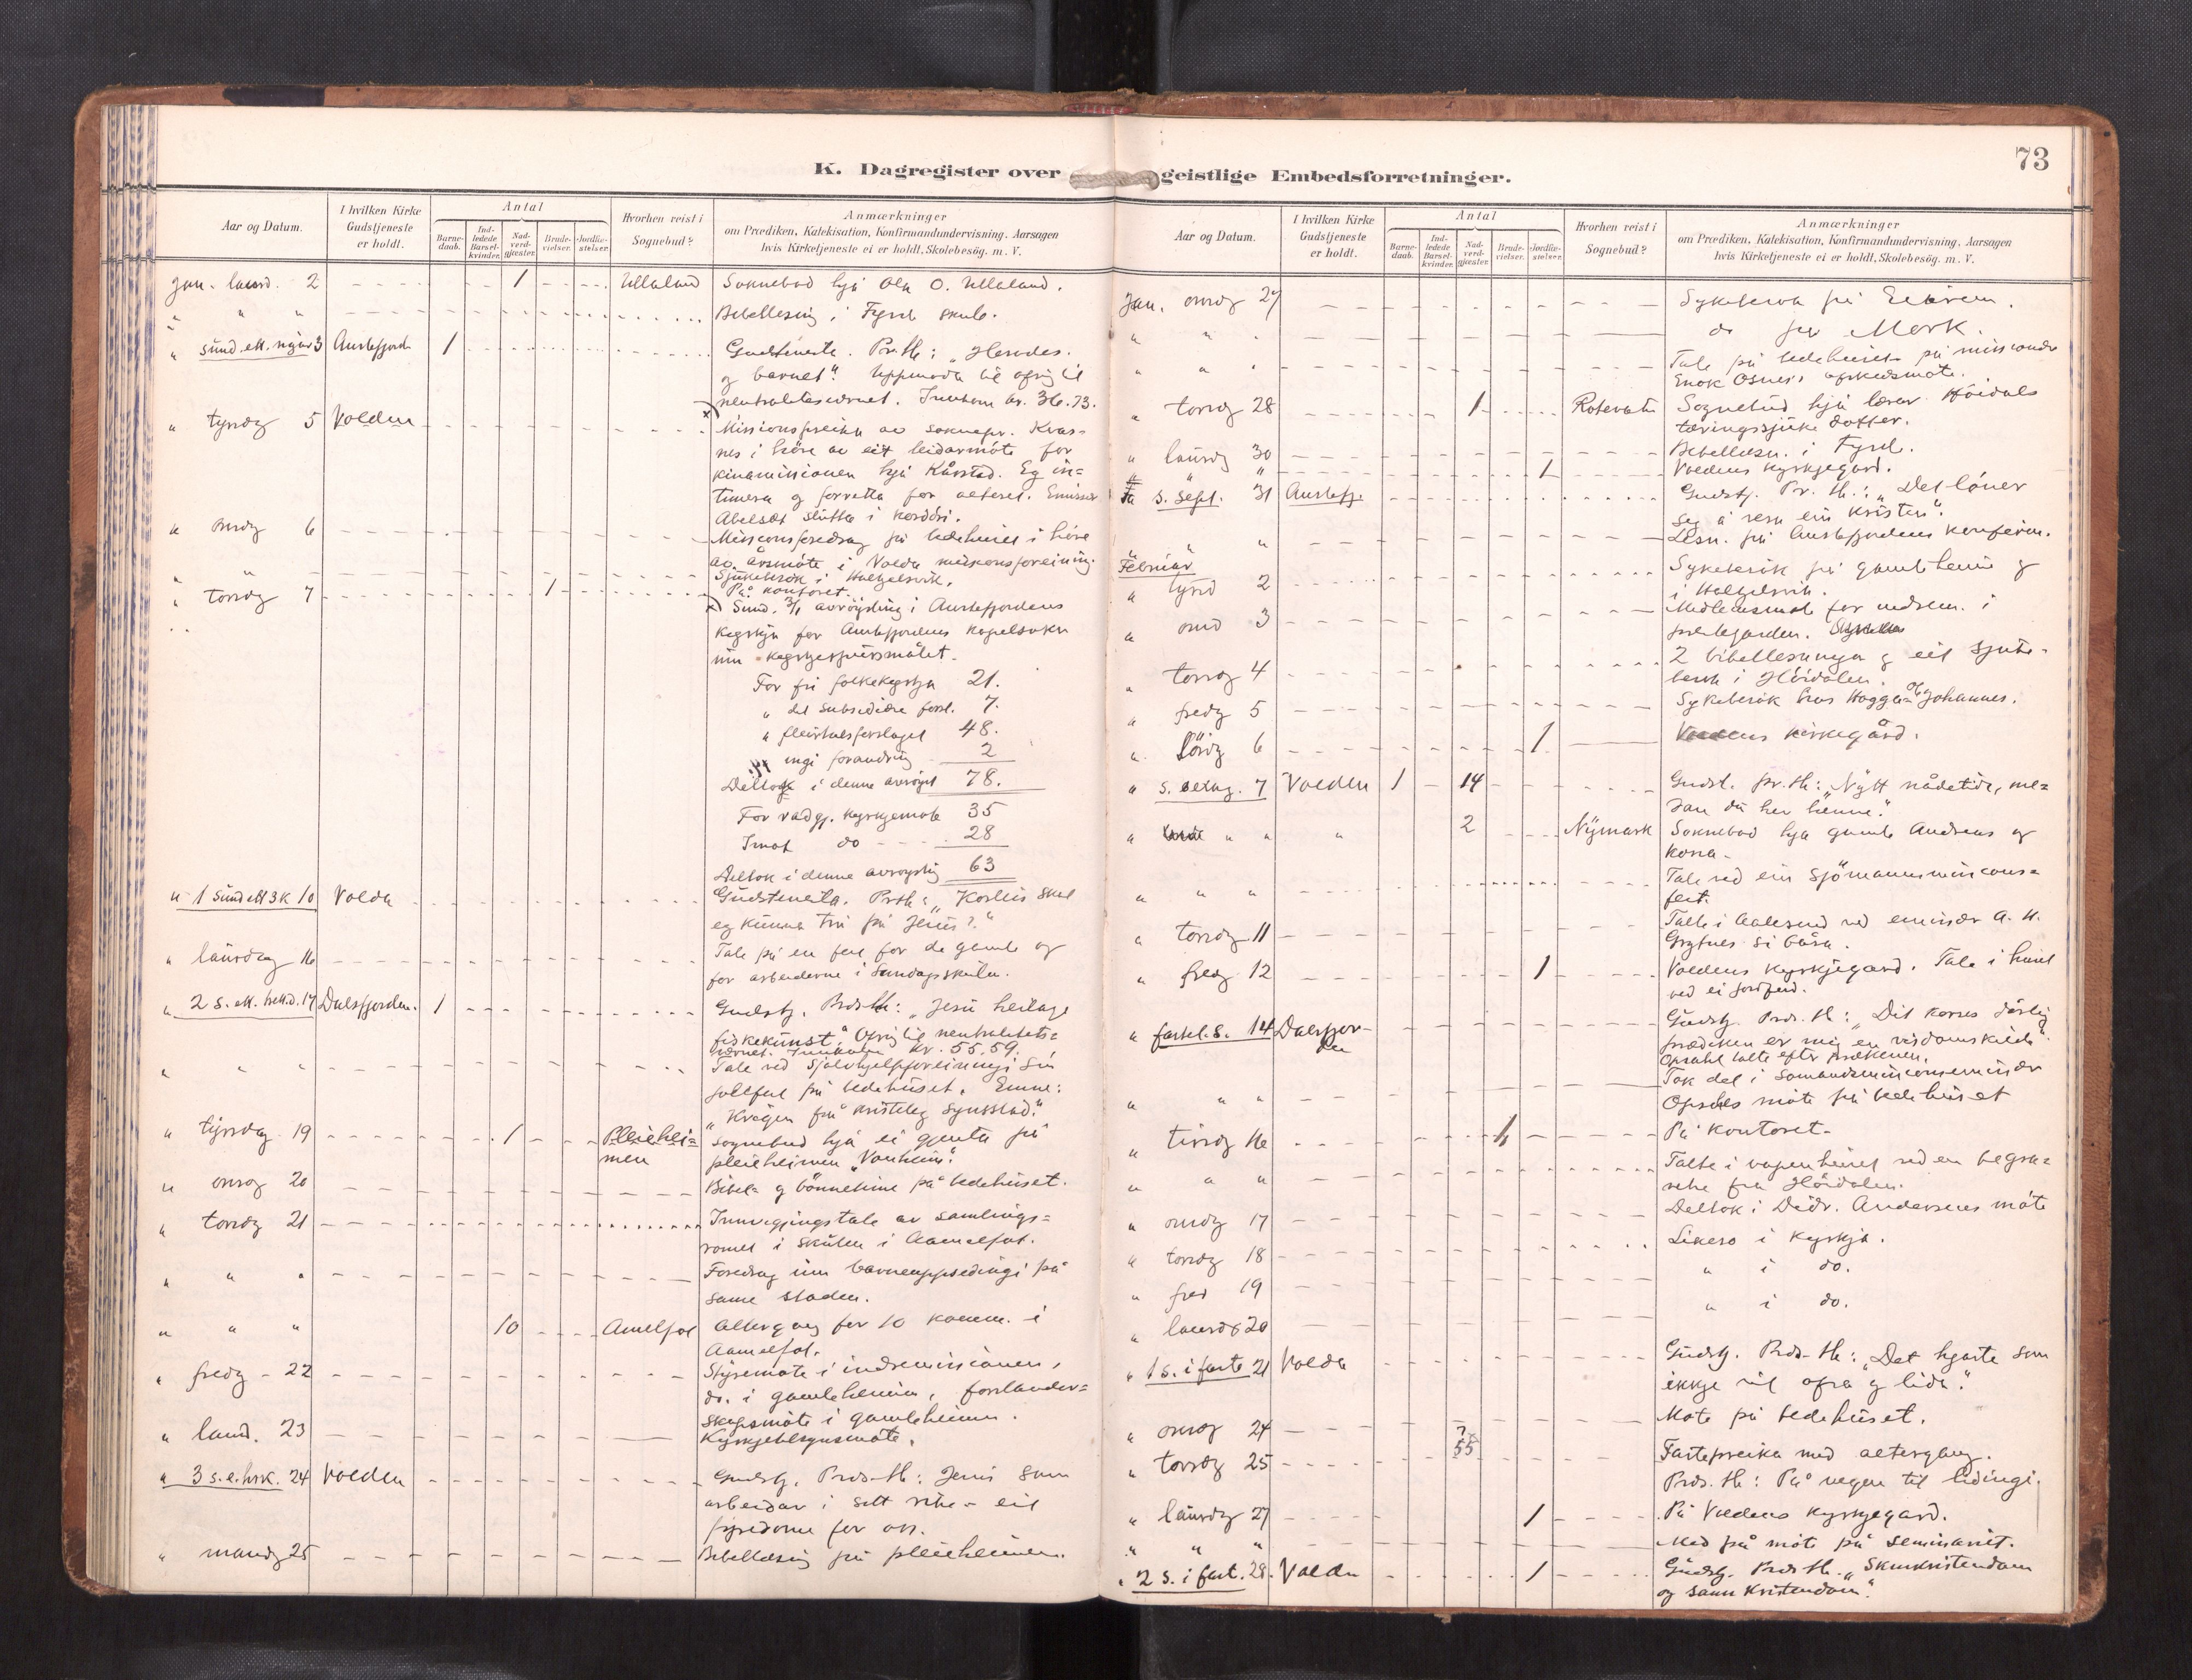 73
K. Dagregister over geistlige Embedsforretninger.
Aar og Datum.
I hvilken Kirke Gudstjeneste er holdt.
Antal
Barne-daab.
Ind-ledede Barsel-kvinder.
Nad-verd-gjæster.
Brude-vielser.
Jordfæ-stelser.
Hvorhen reist i Sognebud?
Anmærkninger
om Prædiken, Katekisation, Konfirmandundervisning. Aarsagen
hvis Kirketjeneste ei er holdt, Skolebesög. m. V.
Jan. laurd. 2 1 Ullaland Soknebod hjå Ola O. Ullaland.
" " " Bibellesing i Fyrde skule.
" sund. ett. nyår 3 Austefjord 1 Gudstineste. Pr. th: "Herodes
og barnet". Uppmoda til ofring til
neutralitetsvernet. Innkom kr. 36.73.
" tyrsdag 5 Volden Missionspreika av soknepr. Kvas=
nes i höve av eit leidarmöte for
kinamissionen hjå Kårstad. Eg in=
timera og forretta for alteret. Emissær
Abelset slutta i kordöri.
" onsdg 6 Missionsforedrag på bedehuset i höve
av årsmöte i Volda missionsforeining.
" " Sjukebesök i Halkjelsvik.
" torsdg 7 1 På kontoret.
x) Sund. 3/1 avröysting i Austefjordens
kyrkja for Austefjordens kapelsokn
um kyrkjespursmålet.
For fri folkekyrkja 21.
" det subsidiære forsl. 7.
" fleirtalsforslaget 48.
" ingi forandring 2
Deltok i denne avröyst 78.
For rådgj. kyrkjemöte 35
Imot do 28
Deltok i denne avröysting 63
" 1 sund ett 3K 10 Volda Gudstenesta. Prth: "Korleis skal
eg kunna tru på Jesus?"
" laurdag 16 Tale på en fest for de gamle og
for arbeiderne i Sundagsskulen.
" 2 s. ett. hell.d. 17 Dalsfjorden. 1 Gudstj. Prds-th: "Jesu heilage
fiskekunst". Ofring til neutralitets=
vernet. Innkom kr. 55,59.
" " " Tale ved Sjølvhjelpforeiningi si
jolefest på bedehuset. Emne:
"Krigen frå kristeleg synsstad."
" tyrsdag 19 1 Pleiehei=
men Sognebud hjå ei gjenta på
pleieheimen "Vonheim".
" onsdg 20 Bibel- og bönnetime på bedehuset.
" torsdg 21 Innvigjingstale av samlings=
romet i skulen i Aamelfot.
" " " Foredrag um barneuppsedingi på
same staden.
" " " 10 Amelfot Altergang for 10 komm. i
Aamelfot.
" fredg - 22 Styremöte i indremissionen,
do. i gamleheimen, forstander=
skapsmöte i gamleheimen.
" laurd. 23 Kyrkjetilsynsmöte.
" 3 s.e.hrk. 24 Volden Gudstj. Prds-th: Jesus som
arbeidar i sitt rike - eit
fyredöme for oss.
" mandg 25 Bibellesing på pleieheimen.
Aar og Datum.
I hvilken Kirke Gudstjeneste er holdt.
Antal
Barne-daab.
Ind-ledede Barsel-kvinder.
Nad-verd-gjæster.
Brude-vielser.
Jordfæ-stelser.
Hvorhen reist i Sognebud?
Anmærkninger
om Prædiken, Katekisation, Konfirmandundervisning, Aarsagen
hvis Kirketjeneste ei er holdt, Skolebesög. m. V.
Jan. onsdg 27 Sykebesök på
" " " do på Mork.
" " " Tale på bedehuset på missionær
Enok Osnes's afskedsmöte.
" torsdg 28 1 Rotevatn Sognebud hjå lærar Höidals
tæringssjuke dotter.
" laurdg 30 Bibellesn. i Fyrde.
" " " 1 Voldens kyrkjegard.
" s. sept. 31 Austefj. Gudstj. Pr. th.: "Det löner
seg å vera ein kristen".
" " " Lesn. på Austefjordens konfirm.
Februar
" tysd 2 Sykebesök på gamleheim og
i Halkjelsvik.
" onsd 3 Medlemsmöte for indrem. i
prestegarden.
" torsdg 4 2 bibellesninga og eit sjuke-
besök i Höidalen.
" fredg 5 Sykebesök hos Hogga- Johannes.
" lördg 6 1 Voldens kirkegård.
" s. sexag. 7 Volden 1 14 Gudst. pr. th: "Nytt nådetidi, me=
dan du her henne".
" " " " 2 Nymark Soknebod hjå gamle Andreas og
kona.
" " " Tale ved ein sjömannsmissions=
fest.
" torsdg 11 Talte i Aalesund ved emissær A. H.
Grytnes si båra.
" fredg 12 1 Voldens kyrkjegard. Tale i huset
ved ei jordferd.
" fastel. s. 14 Dalsfjor-
den Gudstj. Prds. th: "Dit korses dårlig
prædiken er mig en visdomskilde".
Opsahl talte efter prækenen.
" " " Tok del i Sömandsmissionsemissær
Opsahls möte på bedehuset
" tirsdg 16 1 På kontoret.
" " " Talte i våpenhuset ved en begra=
velse fra Höidalen.
" onsdg 17 Deltok i Andersens möte
" torsdg 18 i kyrkja.
" fred 19 " i do.
" laurdg 20 " i do.
" 1 s. i faste 21 Volda Gudstj. Prds-th: "Det hjarta som
ikkje vil ofra og lida".
" onsdg 24 Möte på bedehuset.
" torsdg 25 55 Fastepreika med altergang.
Prds. th: På vegen til lidingi.
" laurdg 27 1 På Voldens kyrkjegard.
" " " Med på möt på seminariet.
" 2 s. i fast. 28. Volda 1 Gudstj. Prds th. "Skinkristendom
og sann kristendom".